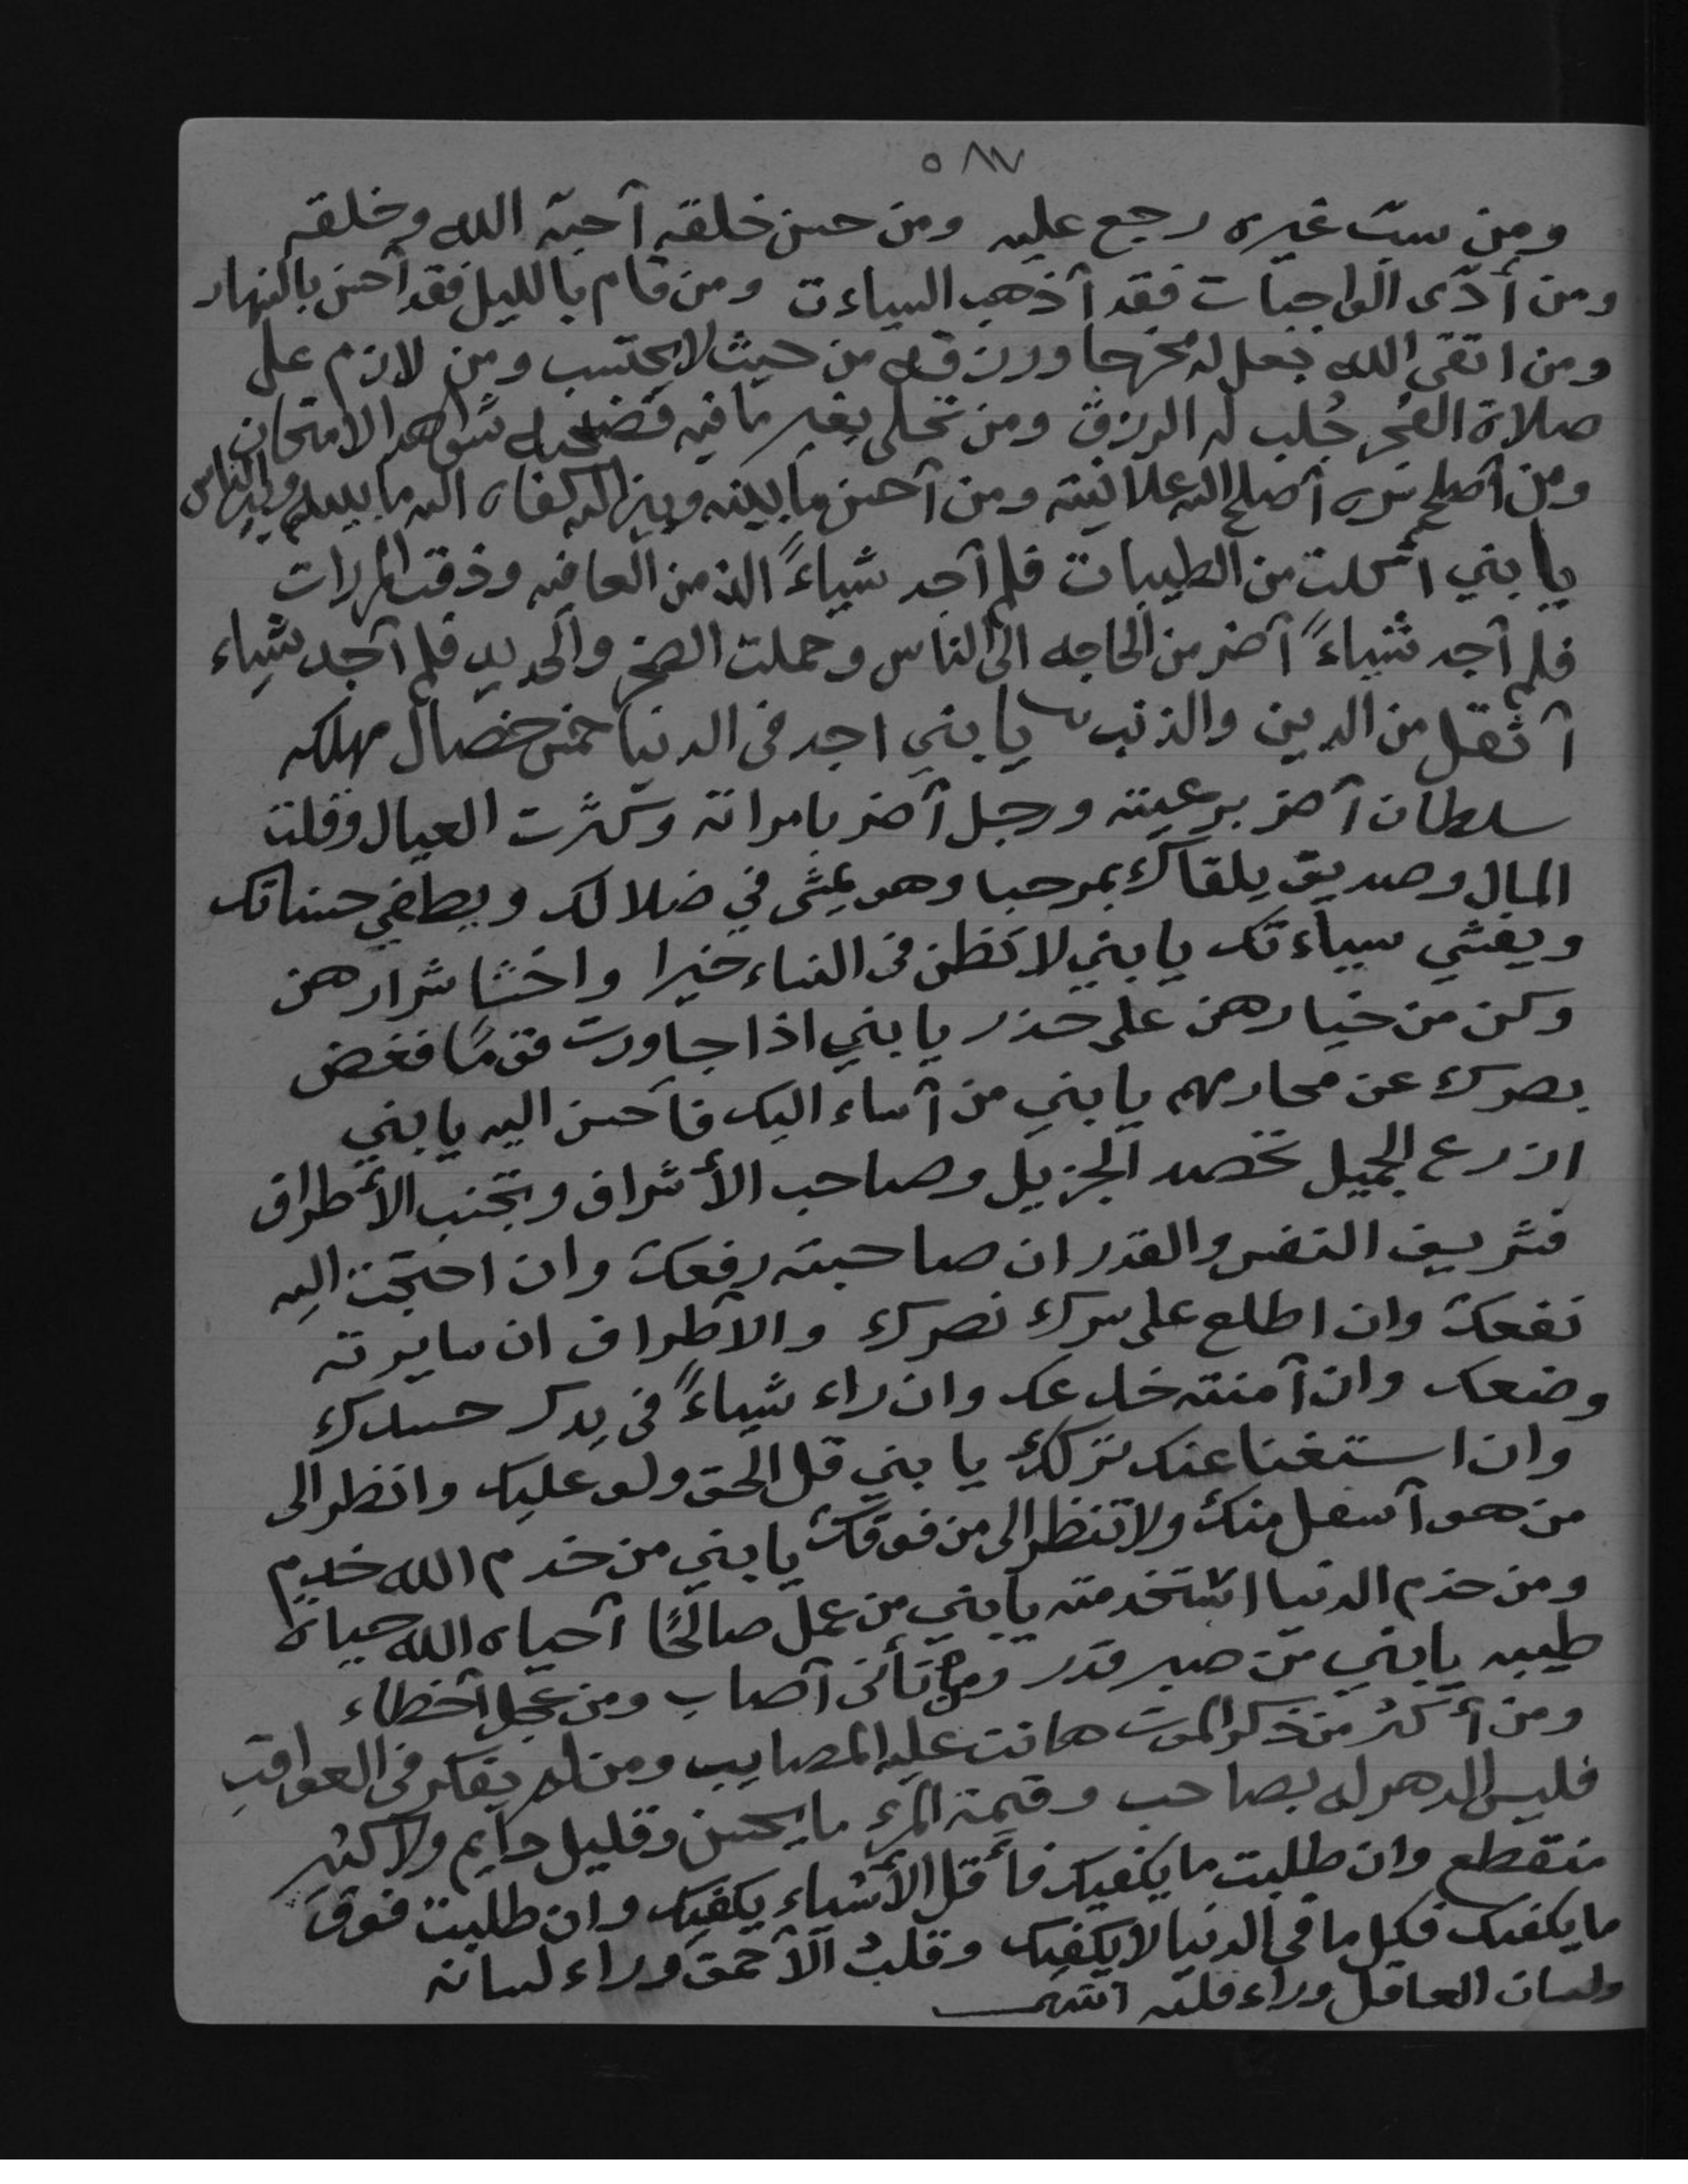 ٥٨٧
ومن سبّ غيره رجع عليه ومن حسن خلقه آحبّه الله وخلقه
ومن أدّى الواجبات فقد آذهب السياءت ومن قام بالليل فقد آحسن بالنهار
ومن اتقى الله جعل له مخرجا ورزقه من حيث لا يحتسب ومن لازم على
صلاة الفجر جُلب له الرزق ومن تحلى بغير ما فيه فضحه شواهد الامتحان
ومن آصلح سره آصلح الله علانيته ومن آحسن ما بينه وبين الله كفاه الله ما بينه وبين الناس
يا بني اكلت من الطيبات فلم آجد شياءً الذ من العافيه وذقت المررات
فلم آجد شياءً آضر من الحاجه الى الناس وحملت الصخر والحديد فلم آجد شياء
آثقل من الدين والذنب يا بني اجد فى الدنيا خمس خصال مهلكه
سلطان آضر برعيته ورجل آضر بامراته وكثرت العيال وقلت
المال وصديق يلقاك بمرحبا وهو يمشى في ضلالك ويطفي حسناتك
ويفشي سياءتك يا بني لا تظن فى النساء خيرا واخشا شرارهن
وكن من خيارهن على حذر يا بني اذا جاورت قومًا فغض
بصرك عن محارمهم يا بني من آساء اليك فآحسن اليه يا بني
ازرع الجميل تحصد الجزيل وصاحب الأشراف وتجنب الأطراف
فشريف النفس والقدر ان صاحبته رفعك وان احتجت اليه
نفعك وان اطلع على سرك نصرك والآطراف ان سايرته
وضعك وان آمنته خلعك وان راء شياءً فى يدك حسدك
وان استغنا عنك تركك يا بني قل الحق ولو عليك وانظر الى
من هو آسفل منك ولا تنظر الى من فوقك يا بني من خدم الله خدم
ومن خدم الدنيا استخدمته يا بني من عمل صالحًا آحياه الله حياة
طيبه يا بني من صبر قدر ومن تأنى آصاب ومن عجل آخطاء
ومن أكثر من ذكر الموت هانت عليه المصايب ومن لم يفكر فى العواقب
فليس الدهر له بصاحب وقيمة المرء ما يحسن وقليل دايم ولا كثير
منقطع وان طلبت ما يكفيك فأقل الأشياء يكفيك وان طلبت فوق
ما يكفيك فكل ما فى الدنيا لا يكفيك وقلب الآحمق وراء لسانه
ولسان العاقل وراء قلبه انتهى